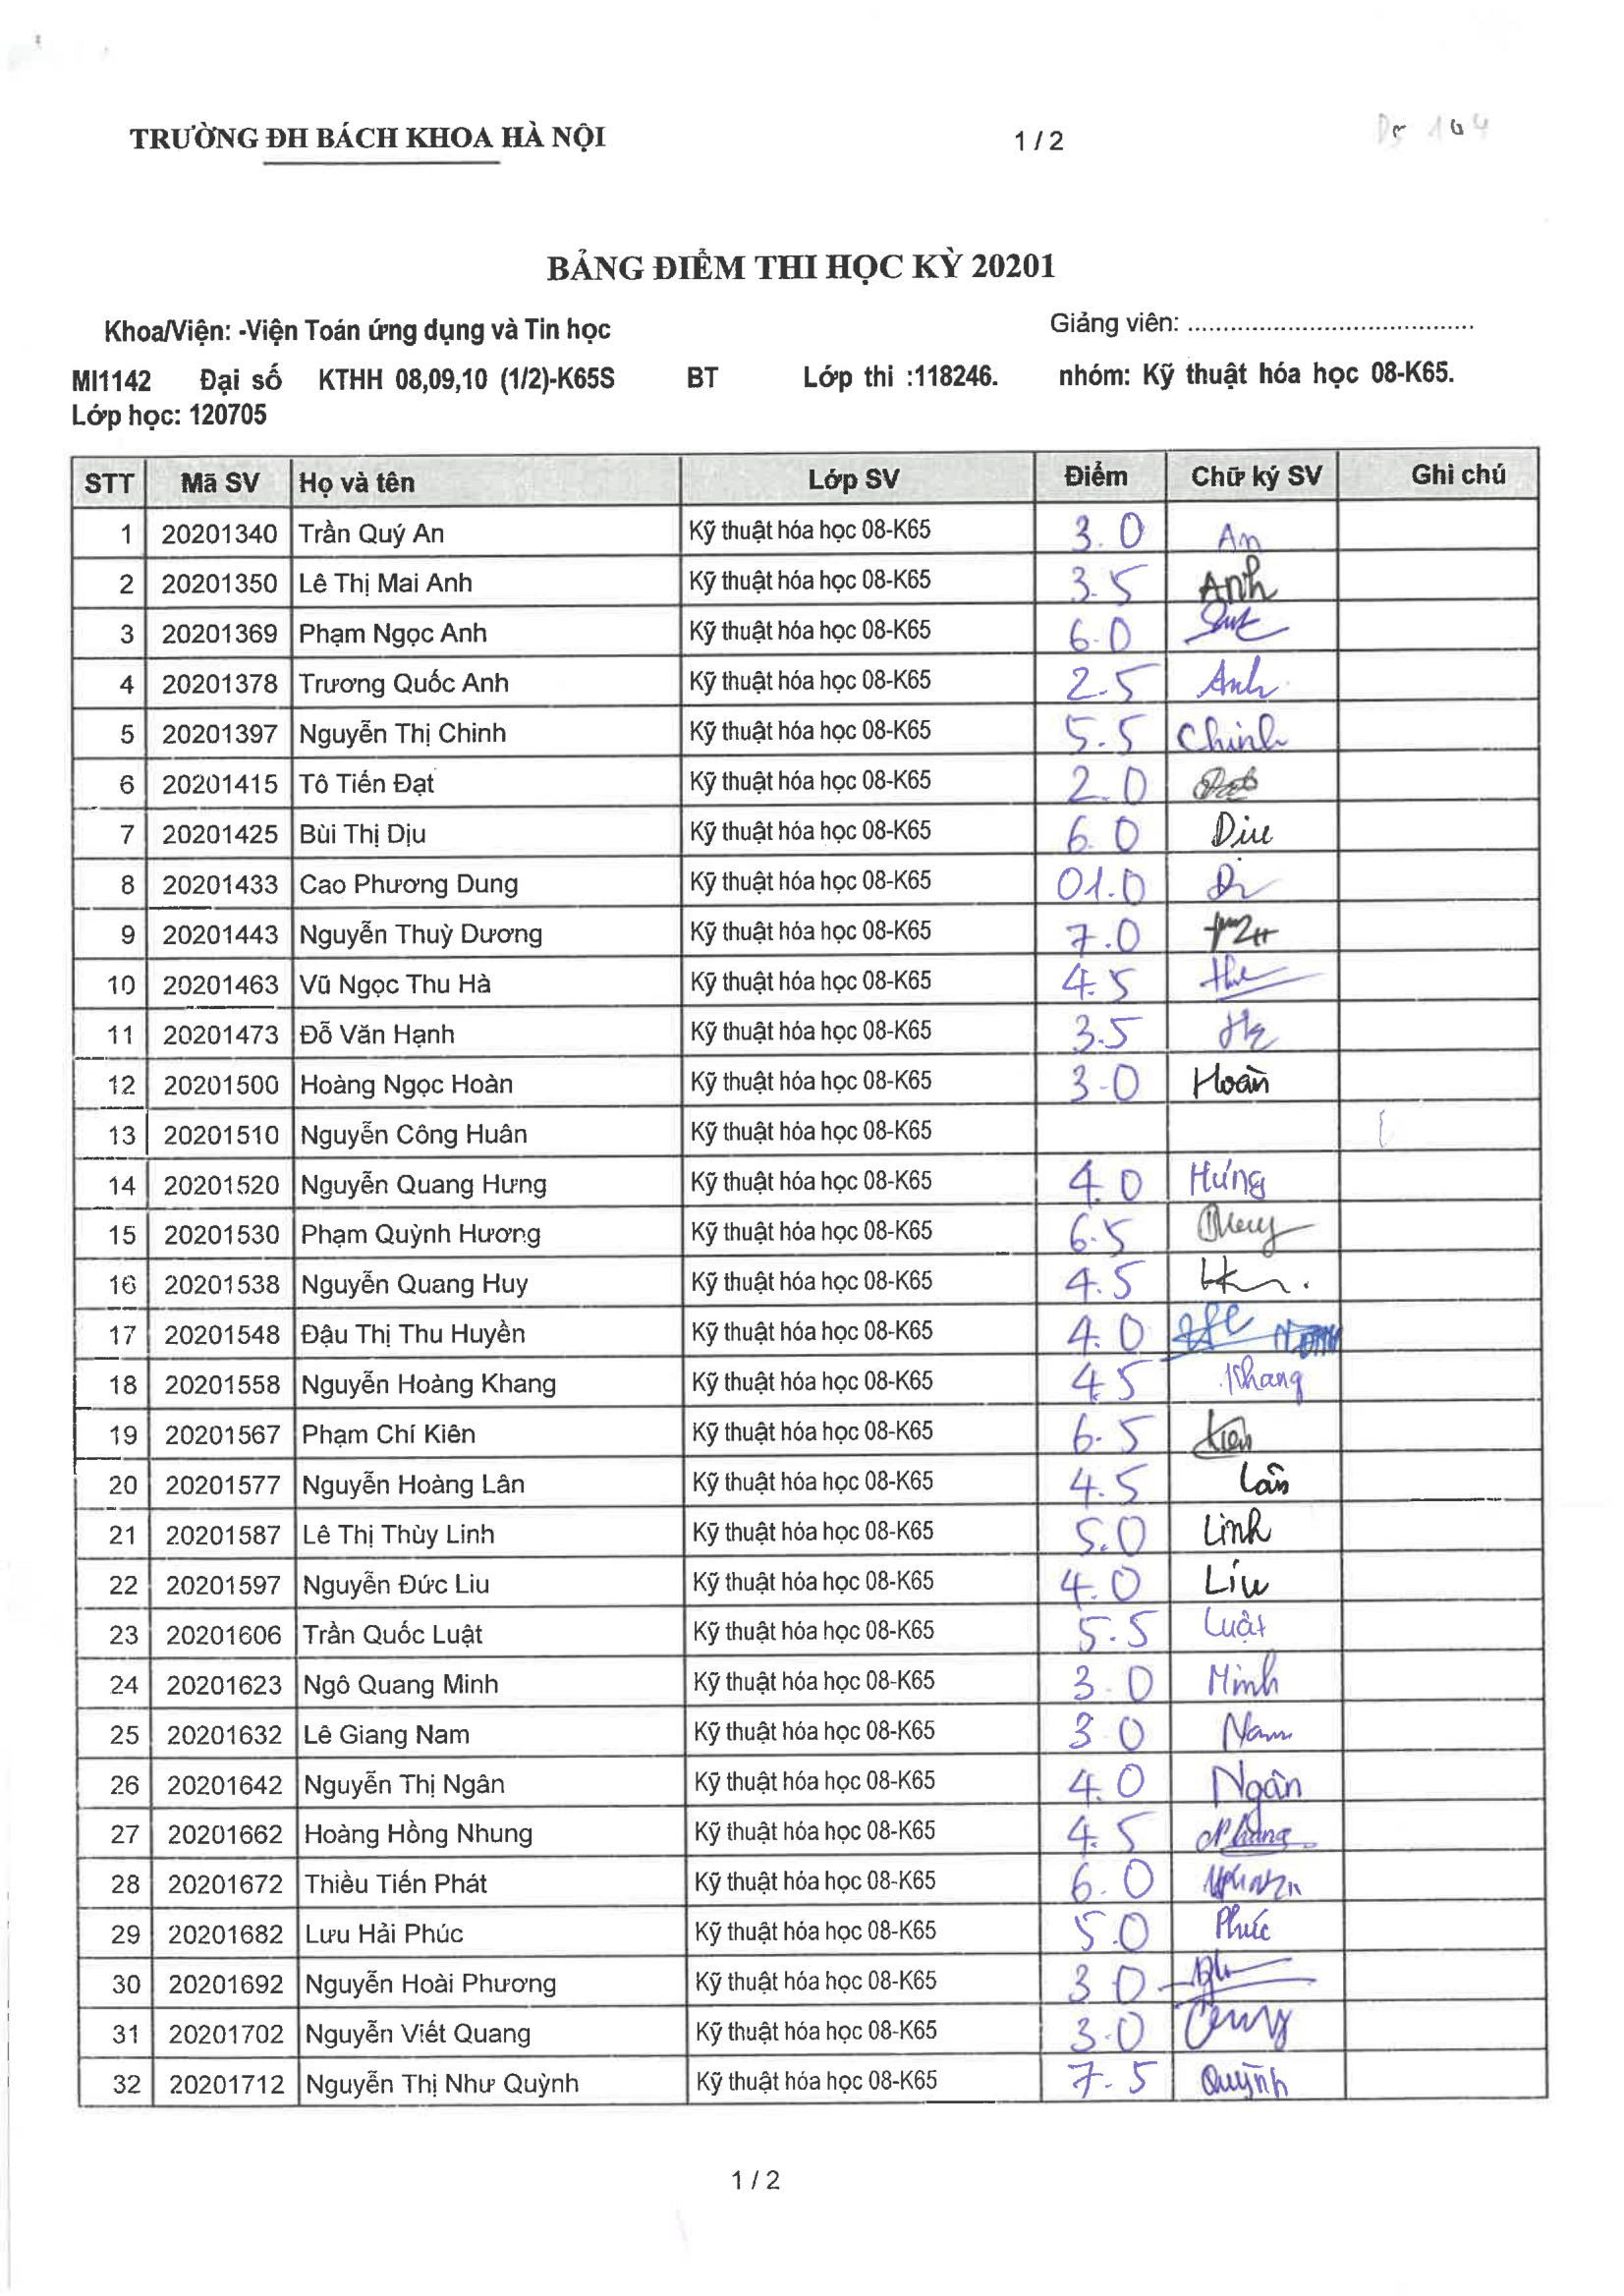 TRƯỜNG ĐH BÁCH KHOA HÀ NỘI 1 / 2
BẢNG ĐIỂM THI HỌC KỲ 20201
Khoa/Viện: -Viện Toán ứng dụng và Tin học Giảng viên: ........................................
MI1142 Đại số KTHH 08,09,10 (1/2)-K65S BT Lớp thi :118246. nhóm: Kỹ thuật hóa học 08-K65.
Lớp học: 120705
STT Mã SV Họ và tên Lớp SV Điểm Chữ ký SV Ghi chú
1 20201340 Trần Quý An Kỹ thuật hóa học 08-K65 3.0 An
2 20201350 Lê Thị Mai Anh Kỹ thuật hóa học 08-K65 3.5 Anh
3 20201369 Phạm Ngọc Anh Kỹ thuật hóa học 08-K65 6.0
4 20201378 Trương Quốc Anh Kỹ thuật hóa học 08-K65 2.5 Anh
5 20201397 Nguyễn Thị Chinh Kỹ thuật hóa học 08-K65 5.5 Chinh
6 20201415 Tô Tiến Đạt Kỹ thuật hóa học 08-K65 2.0
7 20201425 Bùi Thị Dịu Kỹ thuật hóa học 08-K65 6.0 Dịu
8 20201433 Cao Phương Dung Kỹ thuật hóa học 08-K65 01.0
9 20201443 Nguyễn Thuỳ Dương Kỹ thuật hóa học 08-K65 7.0
10 20201463 Vũ Ngọc Thu Hà Kỹ thuật hóa học 08-K65 4.5
11 20201473 Đỗ Văn Hạnh Kỹ thuật hóa học 08-K65 3.5
12 20201500 Hoàng Ngọc Hoàn Kỹ thuật hóa học 08-K65 3.0 Hoàn
13 20201510 Nguyễn Công Huân Kỹ thuật hóa học 08-K65
14 20201520 Nguyễn Quang Hưng Kỹ thuật hóa học 08-K65 4.0 Hưng
15 20201530 Phạm Quỳnh Hương Kỹ thuật hóa học 08-K65 6.5
16 20201538 Nguyễn Quang Huy Kỹ thuật hóa học 08-K65 4.5
17 20201548 Đậu Thị Thu Huyền Kỹ thuật hóa học 08-K65 4.0
18 20201558 Nguyễn Hoàng Khang Kỹ thuật hóa học 08-K65 4.5 Khang
19 20201567 Phạm Chí Kiên Kỹ thuật hóa học 08-K65 6.5 Kiên
20 20201577 Nguyễn Hoàng Lân Kỹ thuật hóa học 08-K65 4.5 Lân
21 20201587 Lê Thị Thùy Linh Kỹ thuật hóa học 08-K65 5.0 Linh
22 20201597 Nguyễn Đức Liu Kỹ thuật hóa học 08-K65 4.0 Liu
23 20201606 Trần Quốc Luật Kỹ thuật hóa học 08-K65 5.5 Luật
24 20201623 Ngô Quang Minh Kỹ thuật hóa học 08-K65 3.0 Minh
25 20201632 Lê Giang Nam Kỹ thuật hóa học 08-K65 3.0 Nam
26 20201642 Nguyễn Thị Ngân Kỹ thuật hóa học 08-K65 4.0 Ngân
27 20201662 Hoàng Hồng Nhung Kỹ thuật hóa học 08-K65 4.5 Nhung
28 20201672 Thiều Tiến Phát Kỹ thuật hóa học 08-K65 6.0
29 20201682 Lưu Hải Phúc Kỹ thuật hóa học 08-K65 5.0 Phúc
30 20201692 Nguyễn Hoài Phương Kỹ thuật hóa học 08-K65 3.0
31 20201702 Nguyễn Viết Quang Kỹ thuật hóa học 08-K65 3.0
32 20201712 Nguyễn Thị Như Quỳnh Kỹ thuật hóa học 08-K65 7.5 Quỳnh
1 / 2